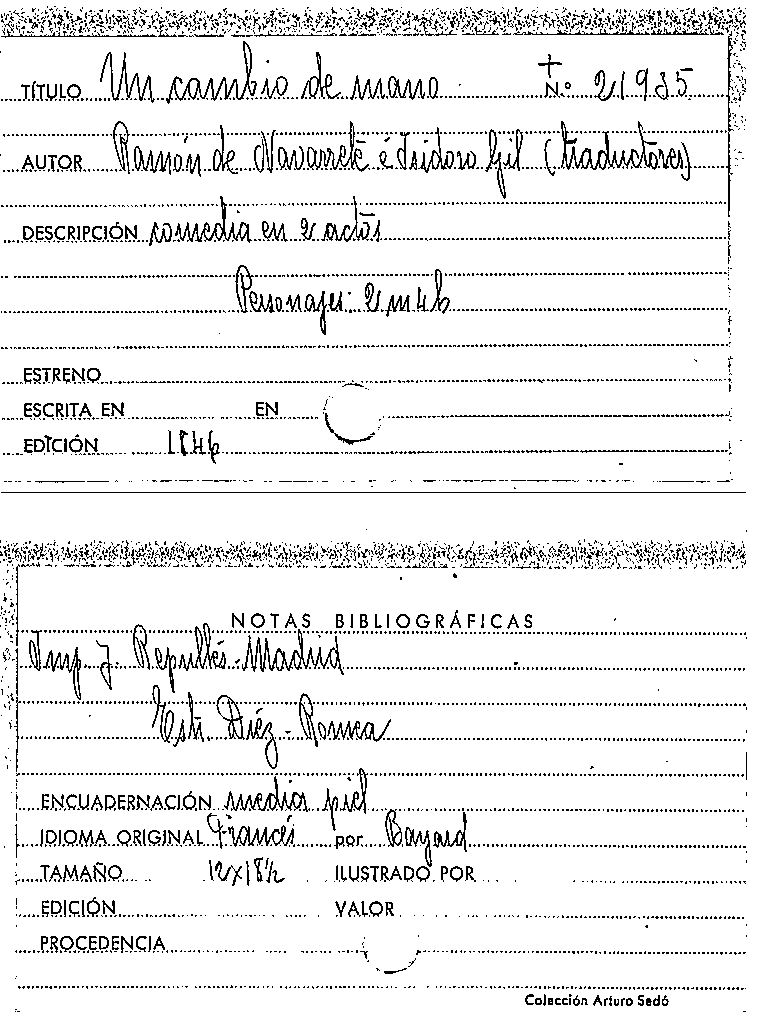 TÍTULO Un cambio de mano N.º 21935
AUTOR Ramón de Navarrete é Isidoro Gil (traductores)
DESCRIPCIÓN comedia en 2 actos
Personajes: 2 m 4 h
ESTRENO
ESCRITA EN EN
EDICIÓN 1846
NOTAS BIBLIOGRÁFICAS
Imp J. Repullés - Madrid
Estr. Díez - Romea
ENCUADERNACIÓN media piel
IDIOMA ORIGINAL Francés por Bayard
TAMAÑO 12x18½ ILUSTRADO POR
EDICIÓN VALOR
PROCEDENCIA
Colección Arturo Sedó